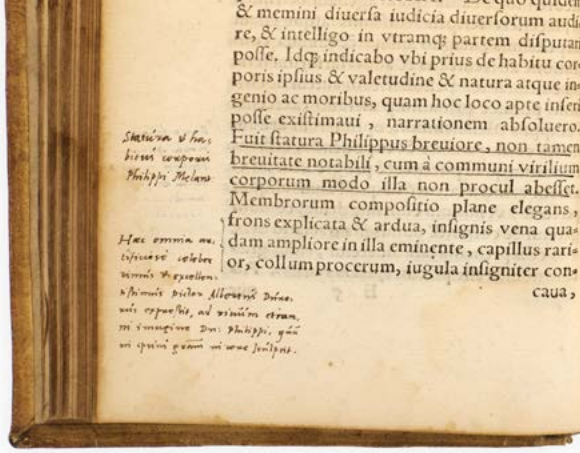 & memini diuersa iudicia diuersorum audi
re, & intelligo in vtramq; partem disputari
posse. Idq; indicabo vbi prius de habitu cor
poris ipsius & valetudine & natura atque in-
genio ac moribus, quam hoc loco apte inseri
posse existimaui, narrationem absoluero.
Fuit statura Philippus breuiore, non tamen
breuitate notabili, cum à communi virilium
corporum modo illa non procul abesset.
Membrorum compositio plane elegans,
frons explicata & ardua, insignis vena qua-
dam ampliore in illa eminente, capillus rari-
or, collum procerum, iugula insigniter con-
caua,
Statura & ha-
bitus corporis
Philippi Melant
Haec omnia ar-
tificiose celeber
rimus & excellen-
tissimus pictor Albertus Düre-
rus expressit, ad vivum etiam,
in imagine Dn: Philippi,
in